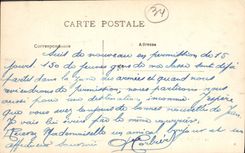 34
CARTE POSTALE
Correspondance Adresse
Suis de nouveau en permission de 15
jours 130 de jeunes gens de ma classe sont déjà
partis dans la zone des armées et quand nous
reviendrons de permission, nous partirons nous
aussi pour une destination inconnue. J'espère
que vous avez toujours de bonnes nouvelles de
Je vais lui écrire par le même courrier.
Recevez Mademoiselle un amical bonjour et un
affectueux souvenir